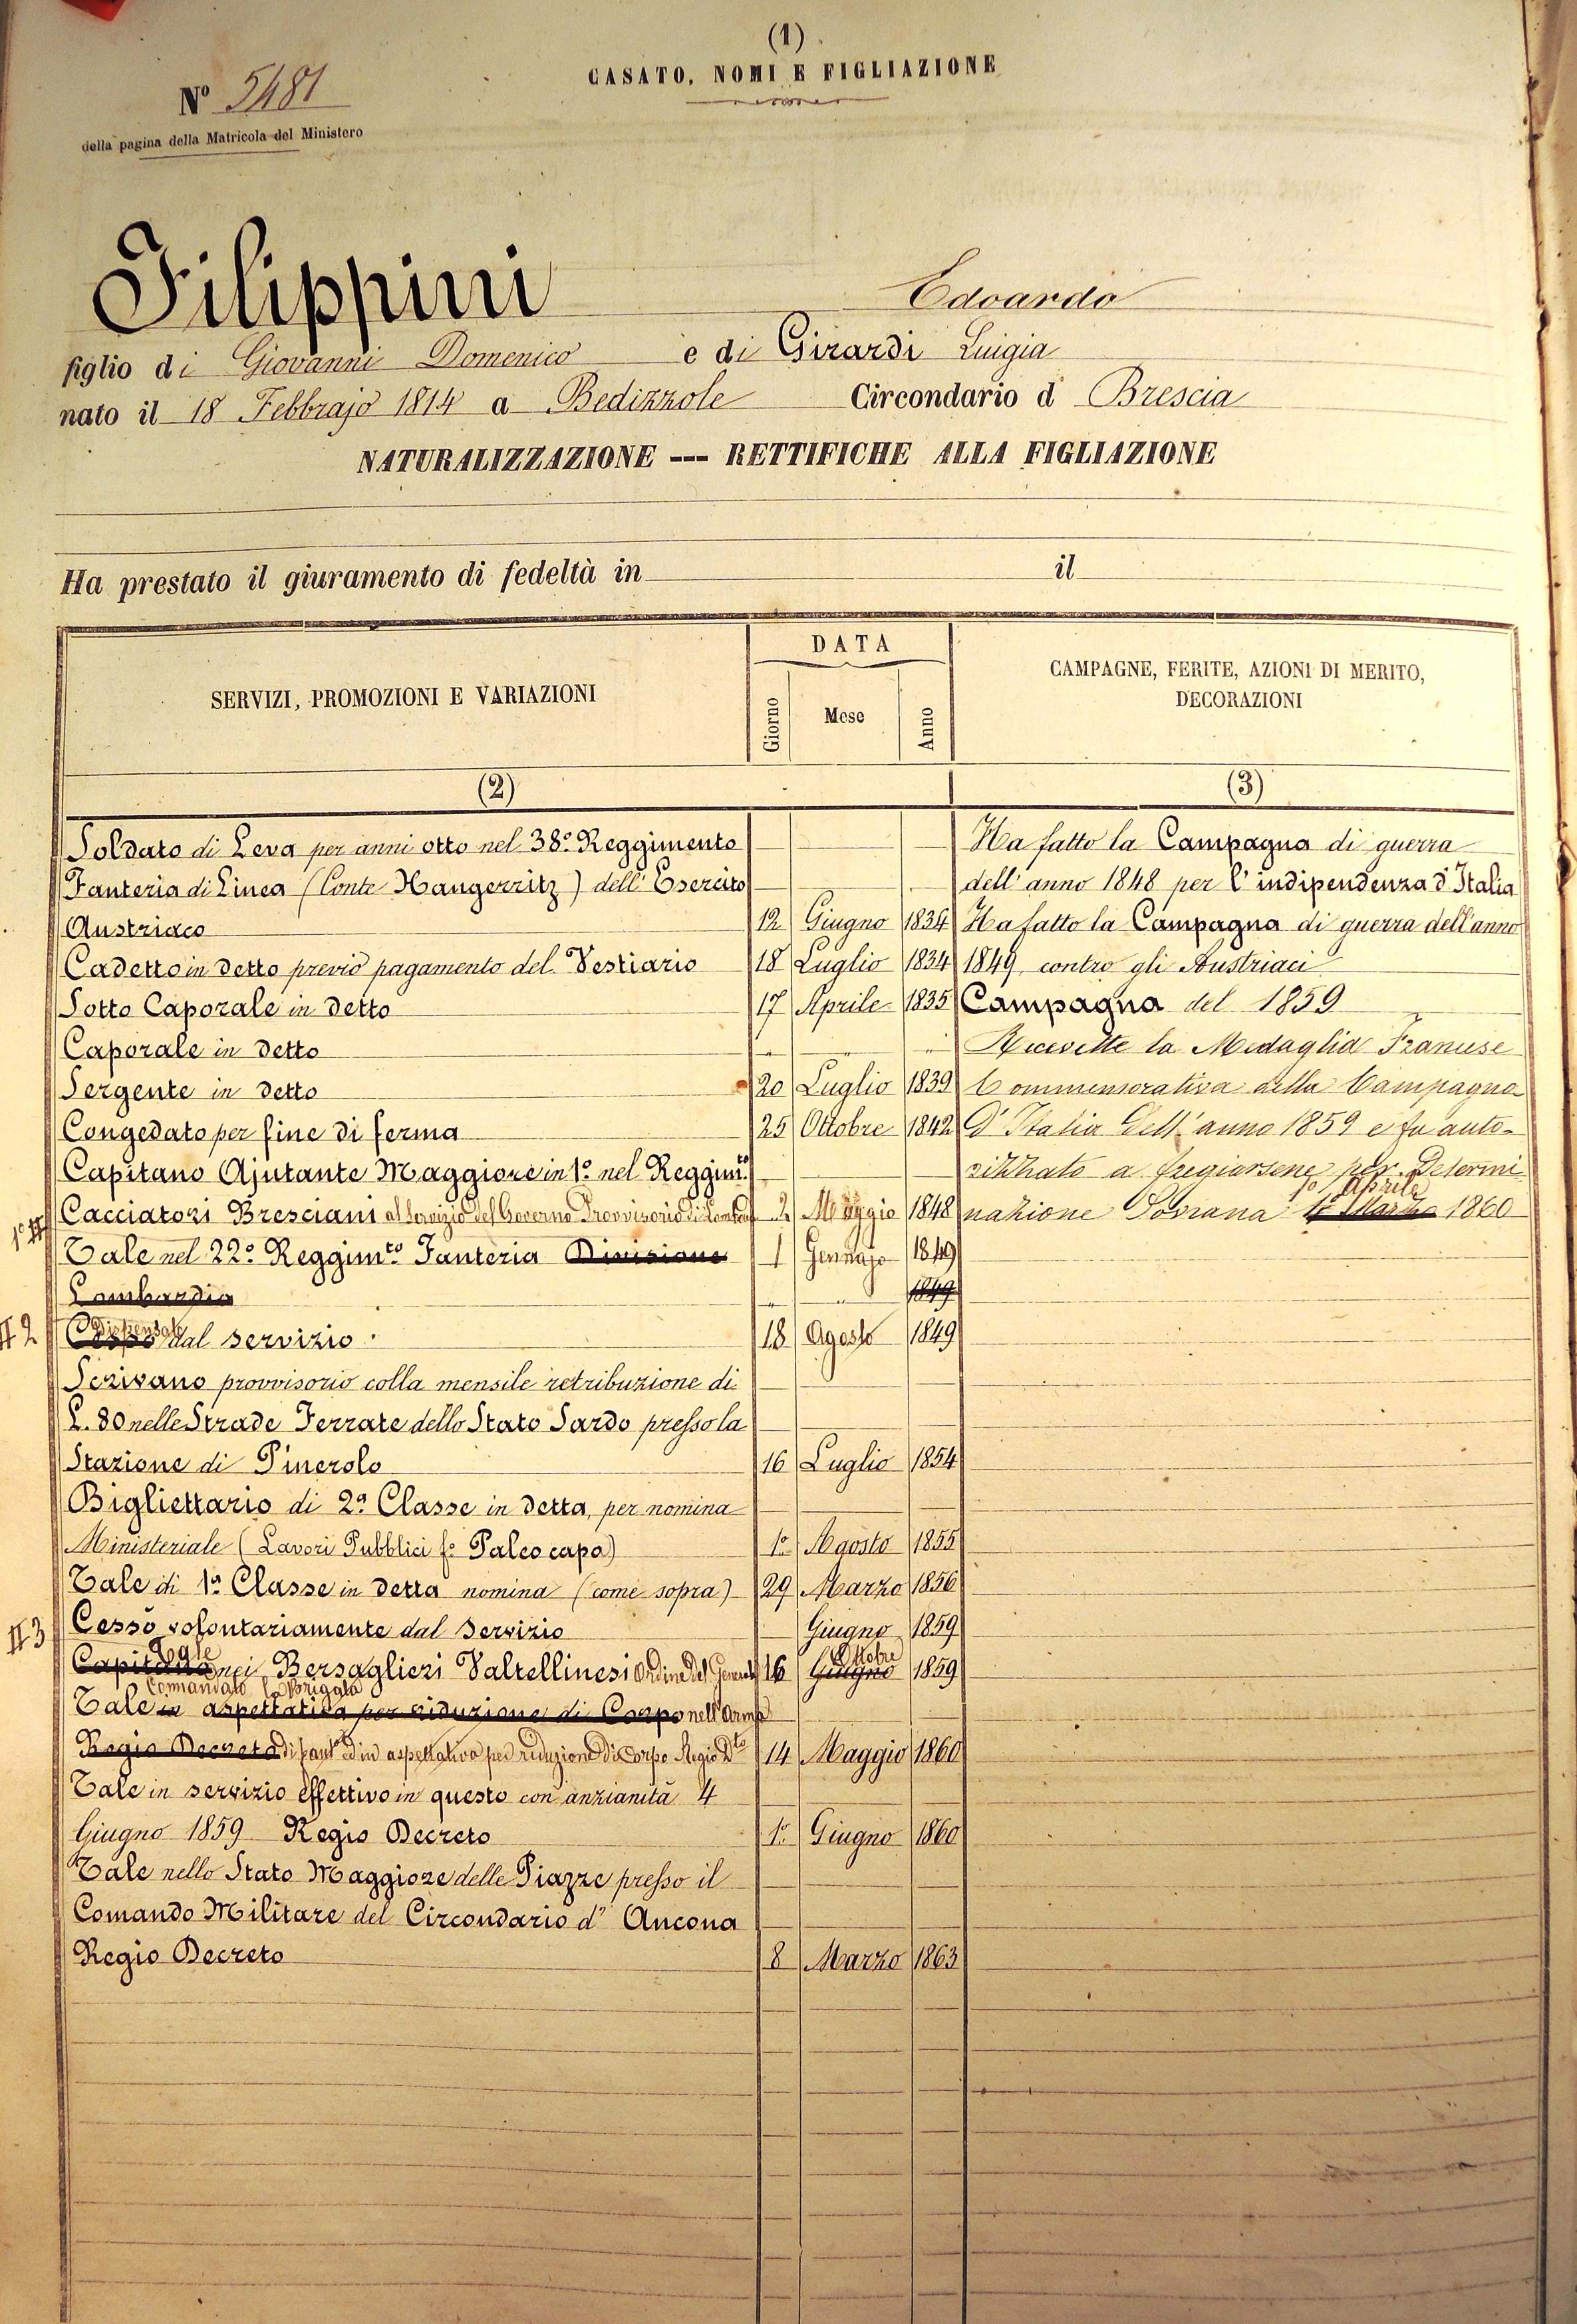 (1)
CASATO, NOMI E FIGLIAZIONE
Nº 5481
della pagina della Matricola del Ministero
Filippini Edoardo
figlio di Giovanni Domenico e di Girardi Luigia
nato il 18 Febbrajo 1814 a Bedizzole Circondario d Brescia
NATURALIZZAZIONE --- RETTIFICHE ALLA FIGLIAZIONE
Ha prestato il giuramento di fedeltà in il
SERVIZI, PROMOZIONI E VARIAZIONI
DATA
Giorno Mese Anno
CAMPAGNE, FERITE, AZIONI DI MERITO,
DECORAZIONI
(2)
(3)
Soldato di Leva per anni otto nel 38.º Reggimento
Fanteria di Linea (Conte Haugerritz) dell' Esercito
Austriaco 12 Giugno 1834
Cadetto in detto previo pagamento del Vestiario 18 Luglio 1834
Sotto Caporale in detto 17 Aprile 1835
Caporale in detto " " "
Sergente in detto 20 Luglio 1839
Congedato per fine di ferma 25 Ottobre 1842
Capitano Ajutante Maggiore in 1.º nel Reggim.to
Cacciatori Bresciani al Servizio del Governo Provvisorio di Lomb 2 Maggio 1848
1º #
Tale nel 22.º Reggim.to Fanteria Divisione 1 Gennajo 1849
Lombardia " " 1849
# 2
Cessò Dispensato dal servizio 18 Agosto 1849
Scrivano provvisorio colla mensile retribuzione di
L. 80 nelle Strade Ferrate dello Stato Sardo presso la
Stazione di Pinerolo 16 Luglio 1854
Bigliettario di 2ª Classe in detta, per nomina
Ministeriale (Lavori Pubblici f.º Paleocapa) 1º Agosto 1855
Tale di 1ª Classe in detta nomina (come sopra) 29 Marzo 1856
Cessò volontariamente dal servizio Giugno 1859
# 3
Capitano Tale nei Bersaglieri Valtellinesi Ordine del Generale 16 Giugno Ottobre 1859
Comandato la Brigata
Tale in aspettativa per riduzione di Corpo nell'Arma
Regio Decreto di fant.ª ed in aspettativa per riduzione di Corpo Regio D.to 14 Maggio 1860
Tale in servizio effettivo in questo con anzianità 4
Giugno 1859 Regio Decreto 1º Giugno 1860
Tale nello Stato Maggiore delle Piazze presso il
Comando Militare del Circondario d' Ancona
Regio Decreto 8 Marzo 1863
Ha fatto la Campagna di guerra
dell' anno 1848 per l'indipendenza d'Italia
Ha fatto la Campagna di guerra dell'anno
1849 contro gli Austriaci
Campagna del 1859
Ricevette la Medaglia Francese
Commemorativa della Campagna
d' Italia dell' anno 1859 e fu auto-
rizzato a fregiarsene per Determi
nazione Sovrana 1º Marzo 1º Aprile 1860